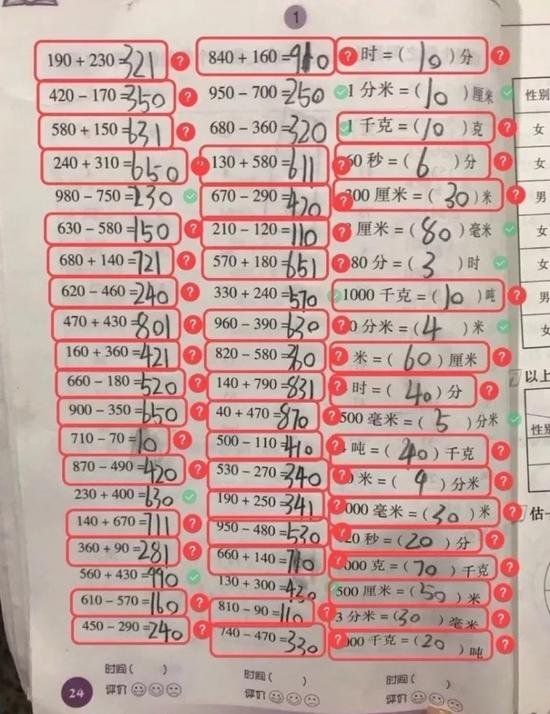 1
190 + 230 =321 840 + 160 =910 时 = ( 10 ) 分
420 - 170 =350 950 - 700 =250 1 分米 = ( 10 ) 厘米 性别
580 + 150 =631 680 - 360 =320 1 千克 = ( 10 ) 克 女
240 + 310 =650 130 + 580 =611 60 秒 = ( 6 ) 分 女
980 - 750 =230 670 - 290 =420 300 厘米 = ( 30 ) 米 男
630 - 580 =150 210 - 120 =110 厘米 = ( 80 ) 毫米 女
680 + 140 =721 570 + 180 =651 80 分 = ( 3 ) 时 女
620 - 460 =240 330 + 240 =570 1000 千克 = ( 10 ) 吨 男
470 + 430 =801 960 - 390 =630 0 分米 = ( 4 ) 米 女
160 + 360 =421 820 - 580 = 米 = ( 60 ) 厘米
660 - 180 =520 140 + 790 =831 时 = ( 40 ) 分 以上
900 - 350 =650 40 + 470 =870 500 毫米 = ( 5 ) 分米
710 - 70 =10 500 - 110 =410 吨 = ( 40 ) 千克 性别
870 - 490 =420 530 - 270 =340 米 = ( 9 ) 分米
230 + 400 =630 190 + 250 =341 000 毫米 = ( 30 ) 米
140 + 670 =711 950 - 480 =530 20 秒 = ( 20 ) 分 估一
360 + 90 =281 660 + 140 =710 000 克 = ( 70 ) 千克
560 + 430 =990 130 + 300 =430 500 厘米 = ( 50 ) 米
610 - 570 =160 810 - 90 =110 3 分米 = ( 30 ) 毫米
450 - 290 =240 740 - 470 =330 000 千克 = ( 20 ) 吨
时间 ( ) 时间 ( ) 时间 ( )
24 评价 评价 评价